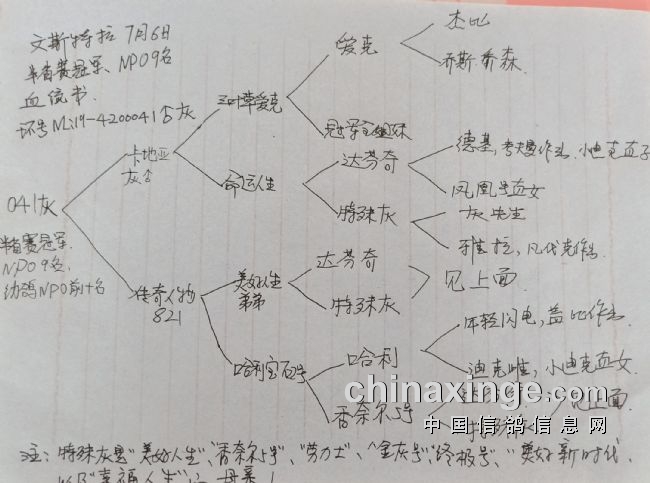 文斯特拉 7月6日
半省赛冠军、NPO9名
血统书.
环号Nl19-4200041 舌灰
杰比
爱克
乔斯乔森
三叶草爱克
冠军宝姐妹
卡地亚
灰舌
达芬奇
德基,考夫曼作出、小迪克直子
命运人生
凤凰号直女
特殊灰
灰先生
雅拉,凡代克作出.
041灰
半省赛冠军.
NPO9名.
幼鸽NPO前十名
传奇人物
821
美好人生
弟弟
达芬奇
见上面.
特殊灰
年轻闪电,盖比作出.
哈利宝石号
哈利
迪克唯,小迪克直女.
香奈尔5号
见上面.
chinaxinge.com
中国信鸽信息网
注: 特殊灰是"美好人生"、"香奈尔5号"、"劳力士"、"金灰号"、"终极号"、"美好新时代.
以及"幸福人生"之母亲!